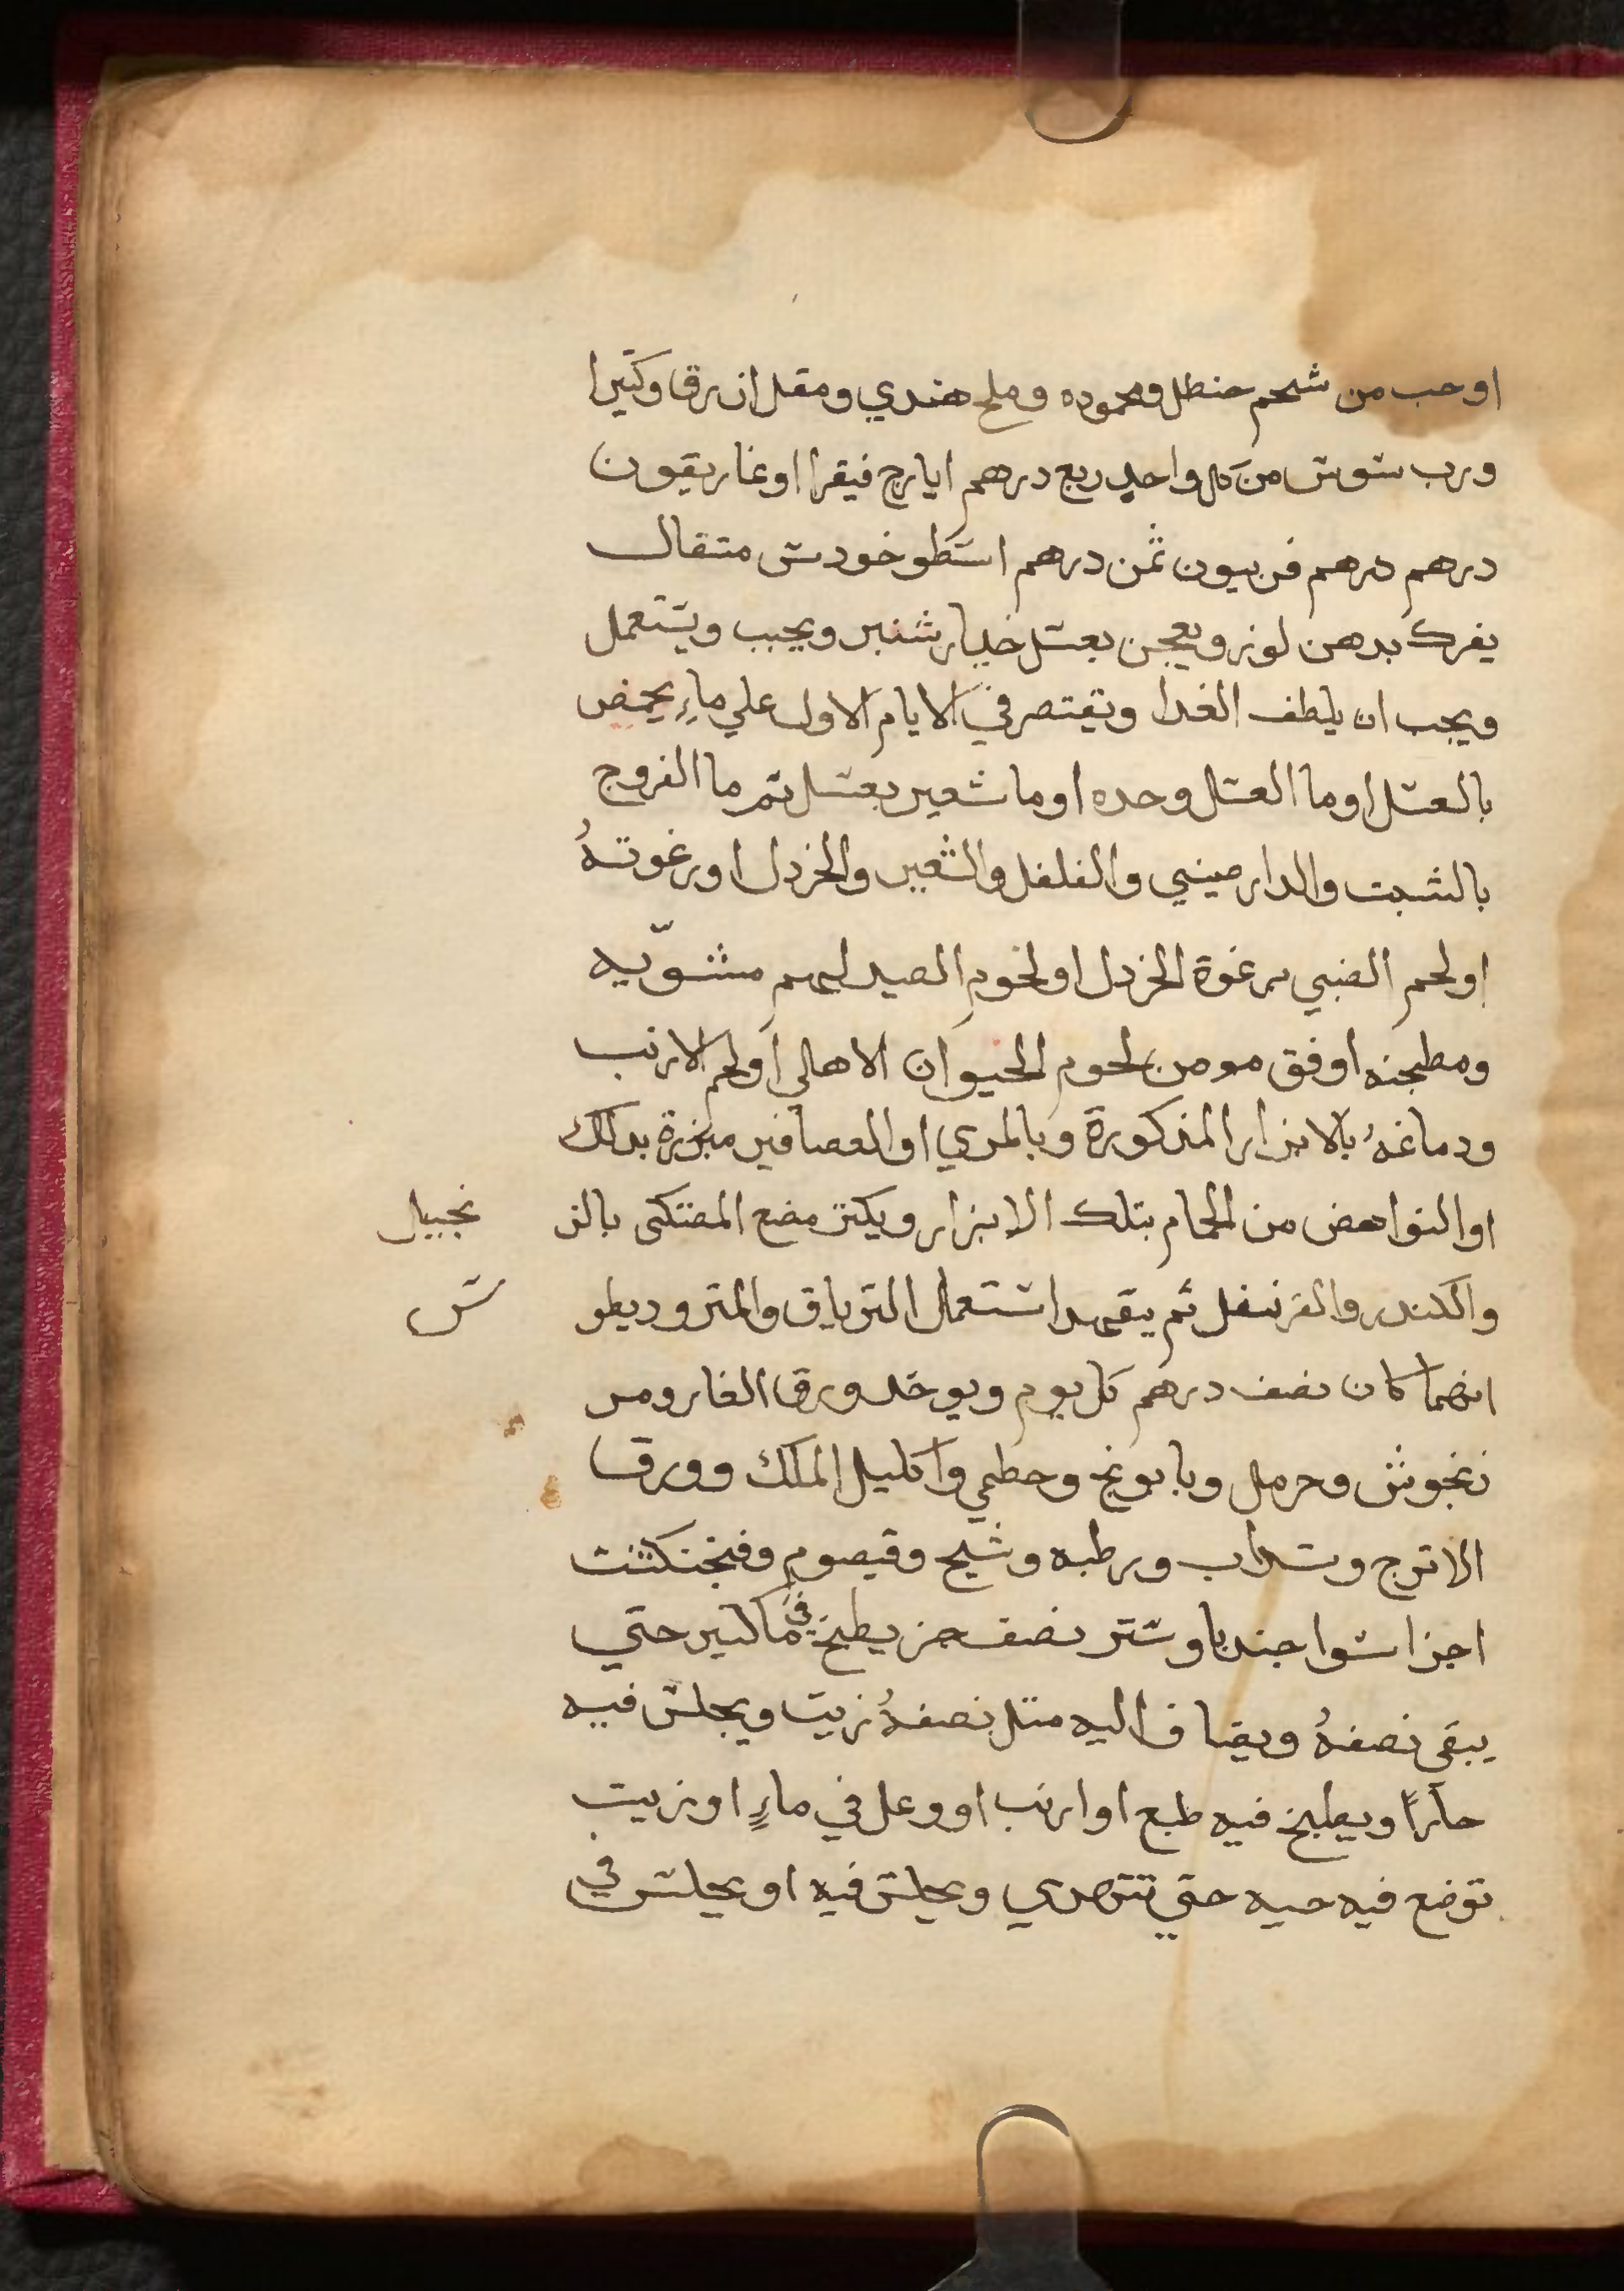 او حب من شحم حنظل ومحموده وملح هندي ومقل ازرق وكتيرا
ورب سوس من كل واحدٍ ربع درهم ايارج فيقرا او غاريقون
درهم درهم فربيون ثمن درهم اسطوخودس متقال
يفرك بدهن لوز ويعجن بعسل خيار شنبر ويحبب ويستعمل
ويجب ان يلطف الغدا ويقتصر في الايام الاول علي ماءِ يحمض
بالعسل او ما العسل وحده او ما شعير بعسل تم ما الفروج
بالشبت والدارصيني والفلفل والشعير والخردل او رغوتهُ
او لحم الضبي برغوة الخردل او لحوم الصيد لهم مشوّيه
ومطجنه اوفق مومن لحوم الحيوان الاهالي او لحم الارنب
ودماغهُ بالابزار المذكورة وبالمري او العصافير مبزرة بدلك
او النواهض من الحمام بتلك الابزار ويكتر مضع المصتكى بالز نجبيل
والكندر والقرنفل ثم يتعهد استعمال الترياق والمتروديطو س
ايهما كان نصف درهم كل يوم ويوخد ورق الغار ومر
زنجوش وحرمل وبابونج وخطمي واكليل الملك وورق
الاترج وسداب ورطبه وشيح وقيصوم وفنجنكشت
اجزا سوا جندباوستر نصف جز يطبخ في ما كتير حتي
يبقى نصفهُ ويضاف اليه متل نصفهُ زيت ويجلس فيه
حاراً ويطبخ فيه ضبع او ارنب او وعل في ماءٍ او زيت
توضع فيه حيه حتي تتهري ويجلس فيه او يجلس في